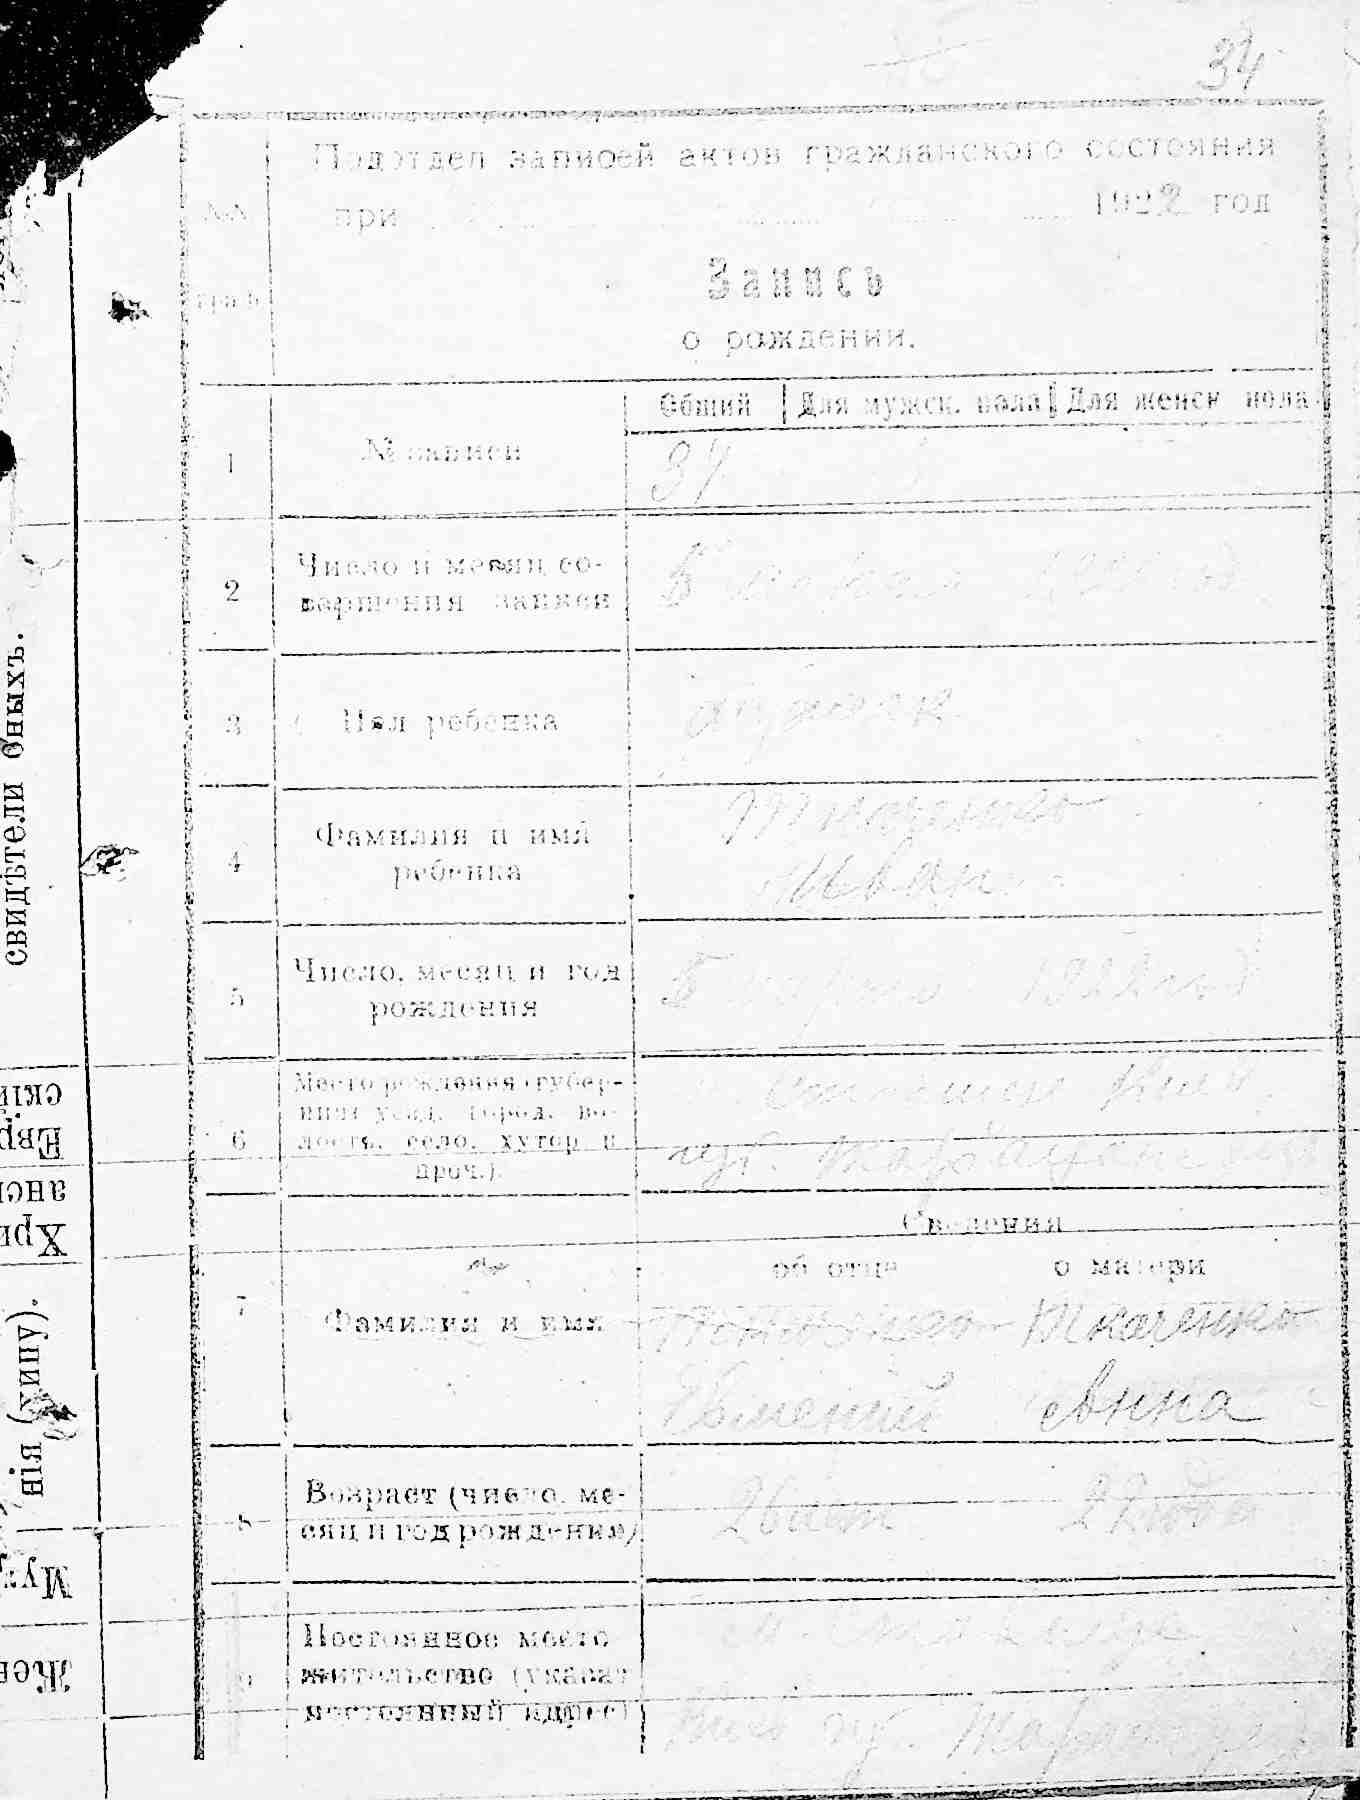 34
Подотдел записей актов гражданского состояния
при 1922 год
№№
граф
Запись
о рождении.
Общий Для мужск. пола Для женск пола
1 № записи 34
2 Число и месяц со-
вершения записи 5 марта 1922 год
3 Пол ребенка мужск
4 Фамилия и имя
ребенка
Ткаченко
Иван
5 Число, месяц и год
рождения 5 марта 1922 год
6 Место рождения (губер-
ния уезд, город, во-
лость, село, хутор и
проч.).
Киев
губ. Таращан
Сведения
об отце о матери
7 Фамилия и имя Ткаченко Ткаченко
Евмений Анна
8 Возраст (число, ме-
сяц и год рождения) 26 лет 22 года
9 Постоянное место
жительство (указат
постоянный адрес)
Киев губ. Таращ
свидѣтели
ныхъ.
нія (кипу).
скій
Евр
Хри
Муж
Жен